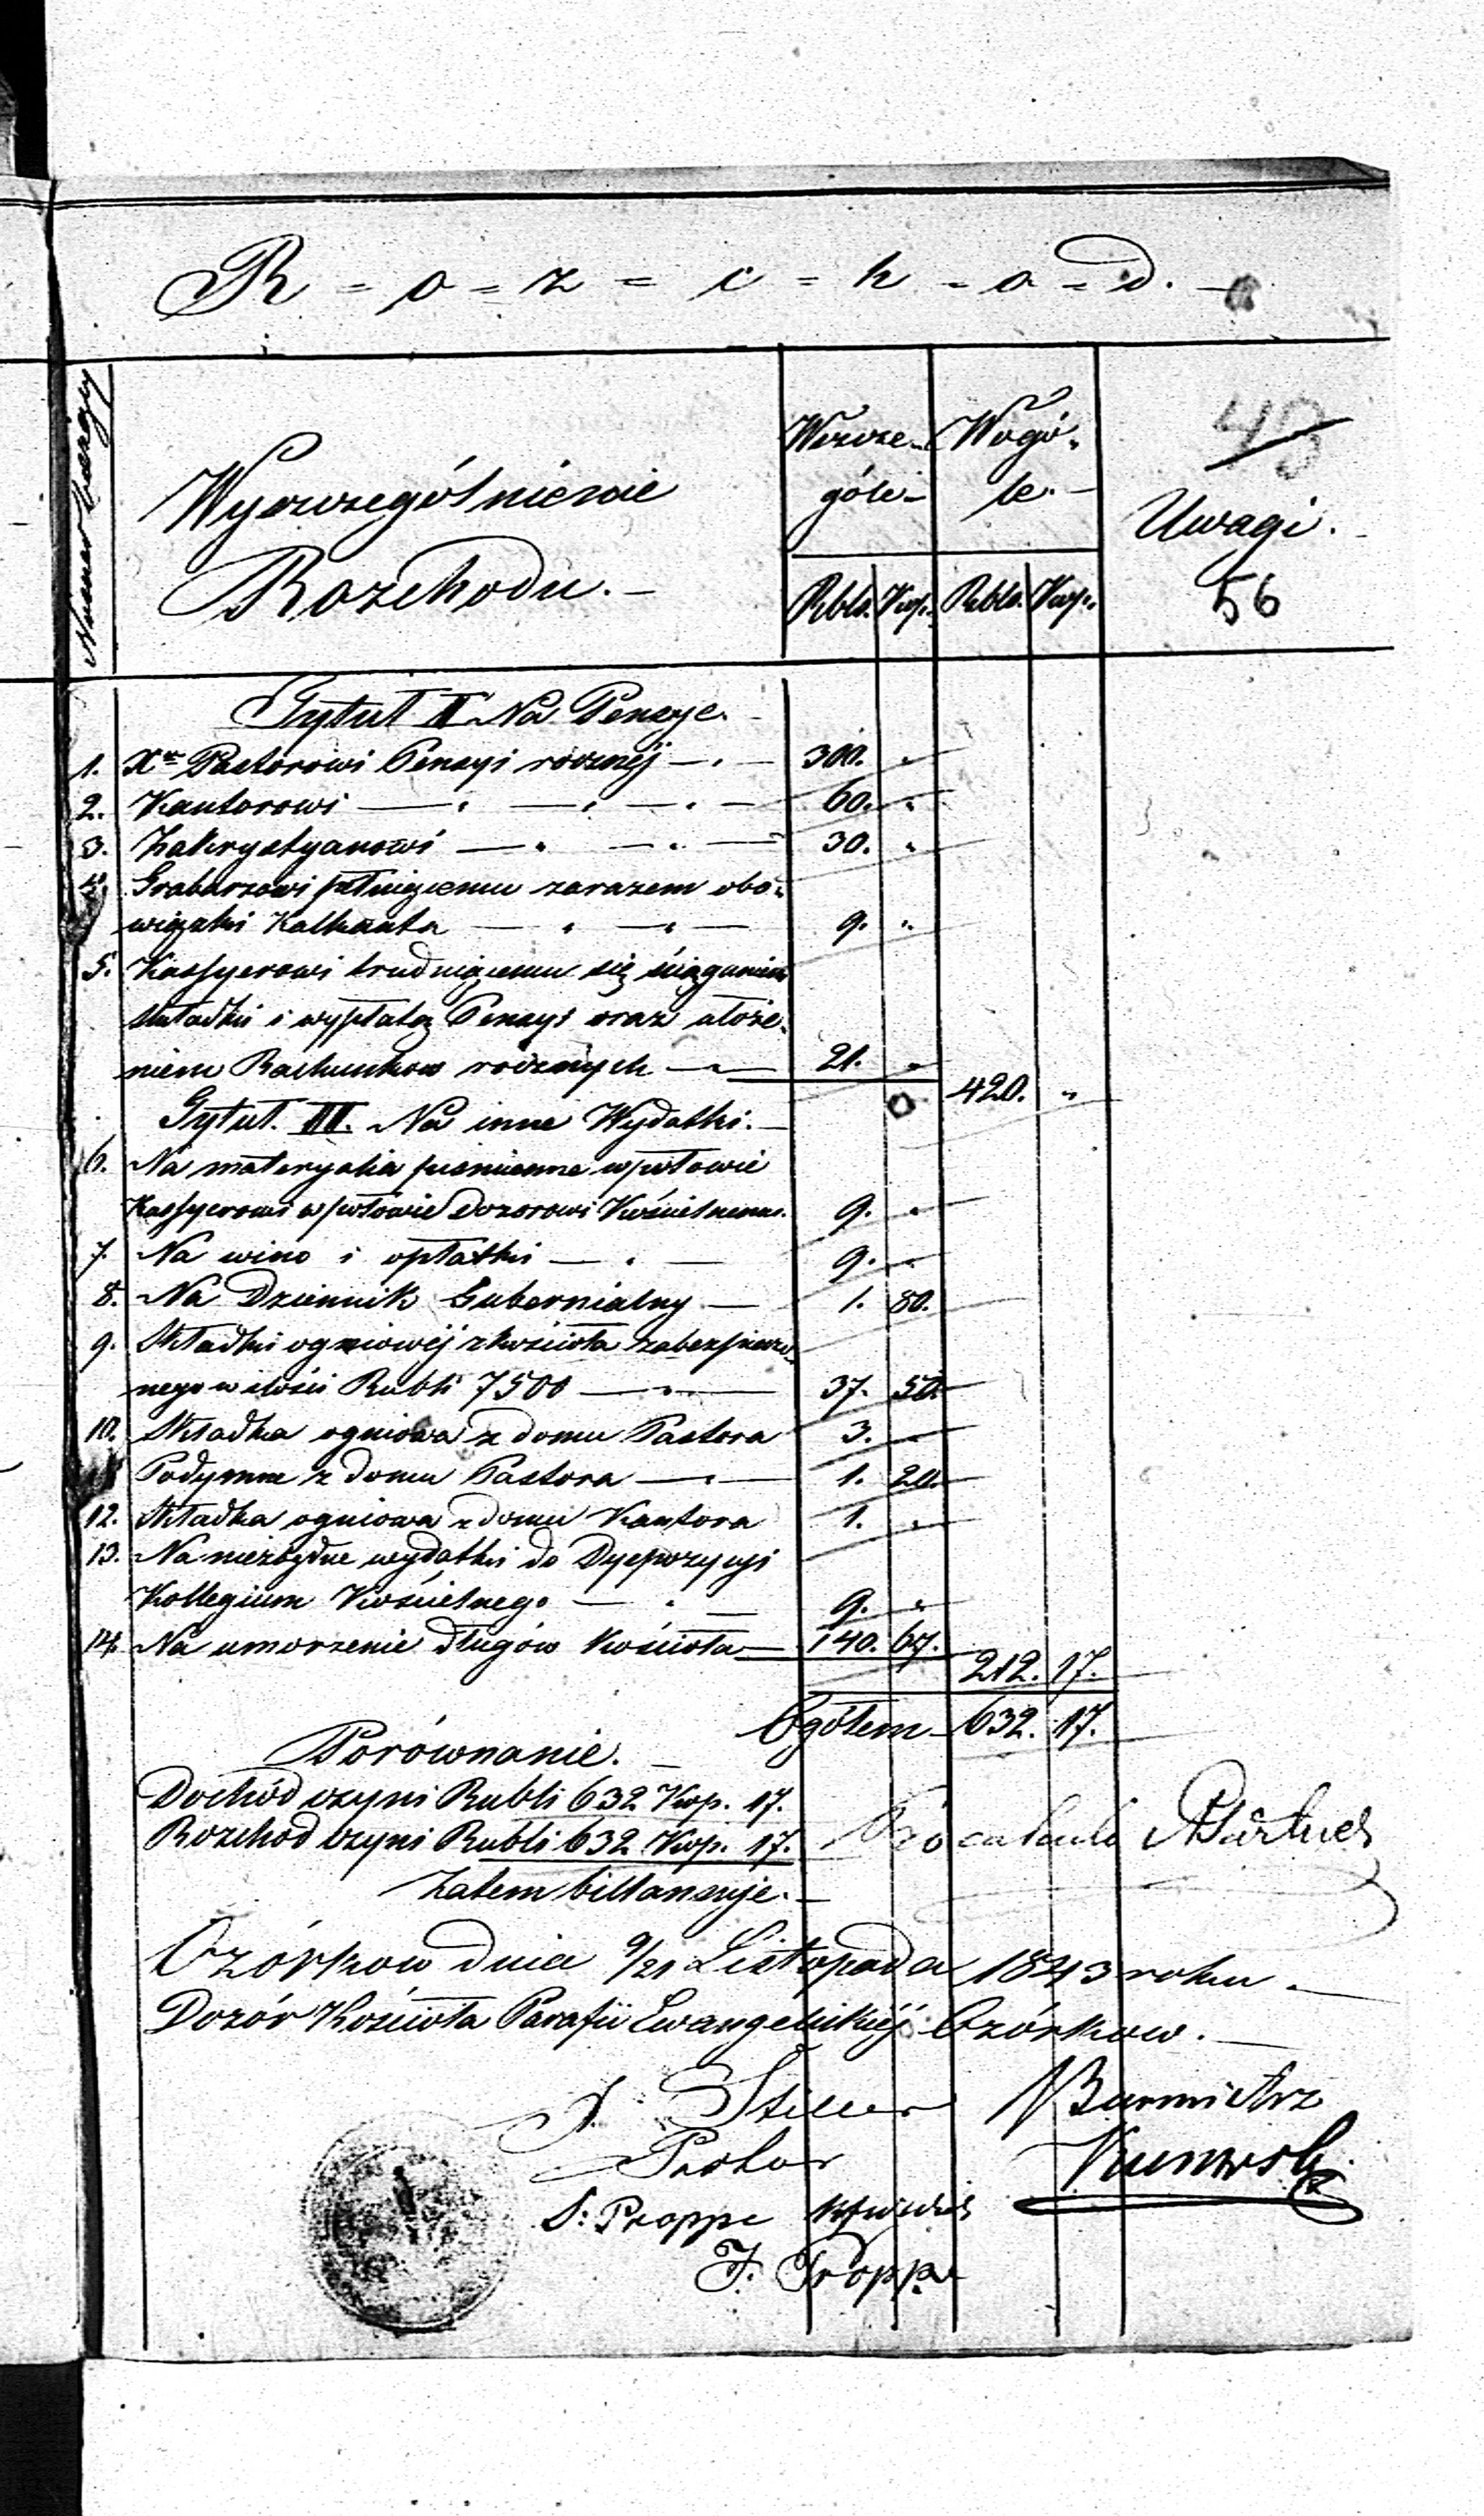 R = o = z = c = h = o = d. —
Numer bieżący
Wyszczególnienie
Rozchodu. —
Wszcze-
góle —
Wogó-
le. —
Uwagi.
43
56
Rbls. Kop. Rbls. Kop.
Tytuł II Na Pensye.
1. Xu Pastorowi Pensyi rocznéj — 300. "
2. Kantorowi — " — " — 60. "
3. Zakrystyanowi — " — " — 30. "
4. Grabarzowi pełniącemu zarazem obo-
wiązki Kalkanta — " — " — 9. "
5. Kassyerowi trudniącemu się ściąganiem
składki i wypłatą Pensyi oraz ułoże-
niem Rachunków rocznych — 21. "
420. "
Tytuł. III. Na inne Wydatki. —
6. Na materyalia piśmienne wpołowie
Kassyerowi wpołowie Dozorowi Kościelnemu. 9. "
7. Na wino i opłatki — " — 9. "
8. Na Dziennik Gubernialny — 1. 80.
9. Składki ogniowéj z kościoła zabezpieczo-
nego w ilości Rubli 7500 — " — 37. 50.
10. Składka ogniowa z domu Pastora 3. "
Podymne z domu Pastora — " — 1. 20.
12. Składka ogniowa z domu Kantora 1. "
13. Na niezbędne wydatki do Dyspozycyi
Kollegium Kościelnego — " — 9. "
14. Na umorzenie długów Kościoła — 140. 67.
212. 17.
Ogółem — 632. 17.
Porównanie. —
Dochód czyni Rubli 632 Kop. 17.
Rozchod czyni Rubli 632 Kop. 17.
Zatem billansuje. —
Ozórkow dnia 9/21 Listopada 1843 roku —
Dozór Kościoła Parafii Ewangelickiéj Ozórkow. —
J. Stiller Burmistrz
Pastor
S: Proppe
F. Proppe